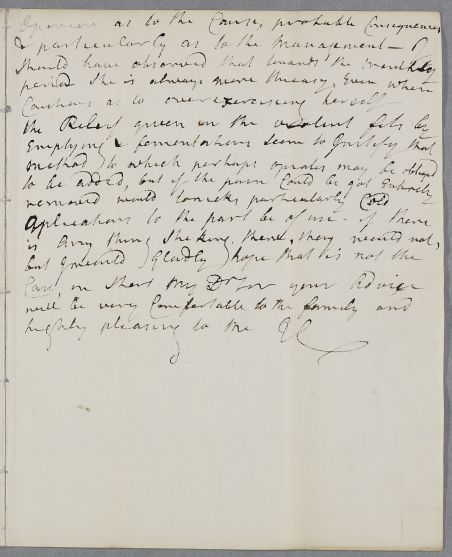 Opinion as to the Cause, probable Consequences
& particularly as to the Management — I
should have observed that towards the monthly
period she is always more uneasy, Even when
Cautious as to overexercising herself
the Relief given in the violent fits by
Emptying & fomentations seem to Justify that
method to which perhaps opiates may be obliged
to be added, but if the pain Could be got Entirely
removed would tonicks, particularly Cold
Applications to the part be of use — if there
is Any thing there, they would not,
but I would (Gladly) hope that is not the
Case, in short my Dr Sir your Advice
will be very Comfortable to the family and
highly pleasing to me